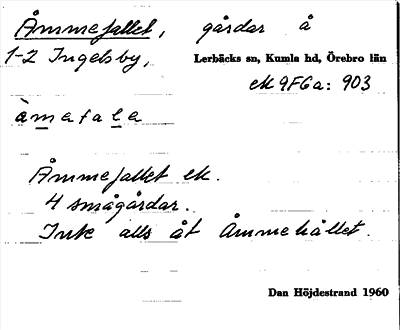 Åmmefallet, gårdar å
1-2 Ingelsby, Lerbäcks sn, Kumla hd, Örebro län
ek 9F6a: 903
àmefale
Åmmefallet ek.
4 smågårdar.
Inte alls åt Åmmehållet.
Dan Höjdestrand 1960